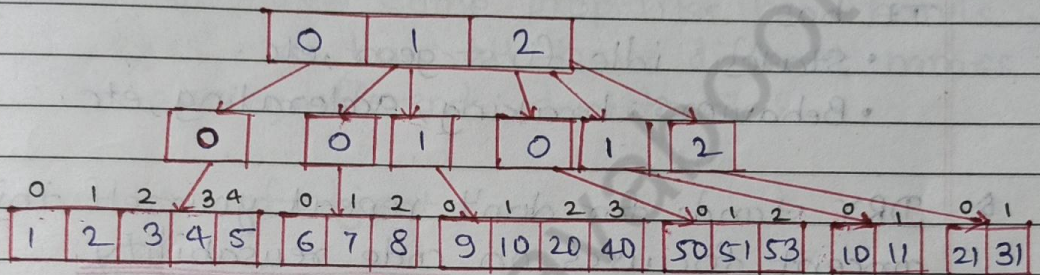 0 1 2
0 0 1 0 1 2
0 1 2 3 4 0 1 2 0 1 2 3 0 1 2 0 1 0 1
1 2 3 4 5 6 7 8 9 10 20 40 50 51 53 10 11 21 31